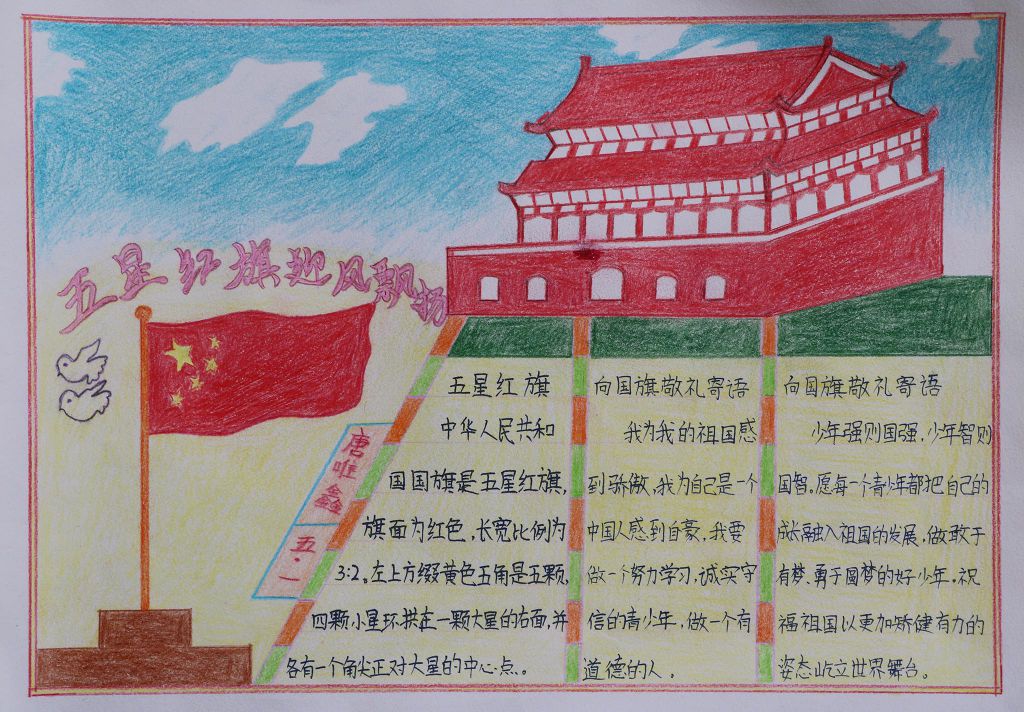 五星红旗迎风飘扬
唐唯鑫
五·一
五星红旗
中华人民共和
国国旗是五星红旗,
旗面为红色,长宽比例为
3:2。左上方缀黄色五角是五颗,
四颗小星环拱在一颗大星的右面,并
各有一个角尖正对大星的中心点。
向国旗敬礼寄语
我为我的祖国感
到骄傲,我为自己是一个
中国人感到自豪,我要
做一个努力学习,诚实守
信的青少年,做一个有
道德的人。
向国旗敬礼寄语
少年强则国强,少年智则
国智。愿每一个青少年都把自己的
成长融入祖国的发展,做敢于
有梦、勇于圆梦的好少年。祝
福祖国以更加矫健有力的
姿态屹立世界舞台。